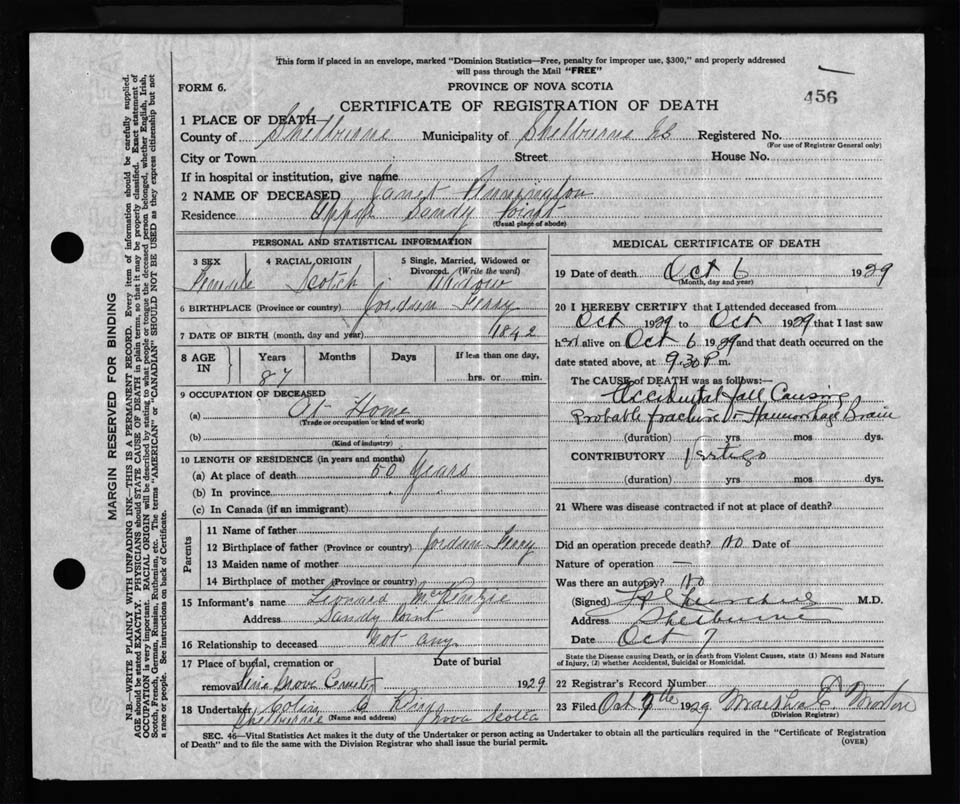 This form if placed in an envelope, marked "Dominion Statistics—Free, penalty for improper use, $300," and properly addressed
will pass through the Mail "FREE"
FORM 6.
PROVINCE OF NOVA SCOTIA
456
CERTIFICATE OF REGISTRATION OF DEATH
1 PLACE OF DEATH
County of Shelburne Municipality of Shelburne Registered No.
(For use of Registrar General only)
City or Town Street House No.
If in hospital or institution, give name
2 NAME OF DECEASED Janet Pennington
Residence Upper Sandy Point
(Usual place of abode)
PERSONAL AND STATISTICAL INFORMATION
3 SEX 4 RACIAL ORIGIN 5 Single, Married, Widowed or
Divorced. (Write the word)
Female Scotch Widow
6 BIRTHPLACE (Province or country) Jordan Ferry
7 DATE OF BIRTH (month, day and year) 1842
8 AGE IN Years Months Days If less than one day,
87 hrs. or min.
9 OCCUPATION OF DECEASED
(a) At Home
(Trade or occupation or kind of work)
(b)
(Kind of industry)
10 LENGTH OF RESIDENCE (in years and months)
(a) At place of death 50 Years
(b) In province
(c) In Canada (if an immigrant)
Parents
11 Name of father
12 Birthplace of father (Province or country) Jordan Ferry
13 Maiden name of mother
14 Birthplace of mother (Province or country)
15 Informant's name Leonard McKenzie
Address Sandy Point
16 Relationship to deceased not any
17 Place of burial, cremation or Date of burial
removal Pine Grove Cemetery 1929
18 Undertaker Colin C King
Shelburne (Name and address) Nova Scotia
MEDICAL CERTIFICATE OF DEATH
19 Date of death Oct 6 1929
(Month, day and year)
20 I HEREBY CERTIFY that I attended deceased from
Oct 1929 to Oct 1929 that I last saw
her alive on Oct 6 1929 and that death occurred on the
date stated above, at 9.30 P. m.
The CAUSE of DEATH was as follows:—
Accidental fall Causing
Probable fracture & Haemorrhage Brain
(duration) yrs mos dys.
CONTRIBUTORY Vertigo
(duration) yrs mos dys.
21 Where was disease contracted if not at place of death?
Did an operation precede death? No Date of
Nature of operation —
Was there an autopsy? No
(Signed) M.D.
Address Shelburne
Date Oct 7
State the Disease causing Death, or in death from Violent Causes, state (1) Means and Nature
of Injury, (2) whether Accidental, Suicidal or Homicidal.
22 Registrar's Record Number
23 Filed Oct 9th 1929 Morton
(Division Registrar)
SEC. 46—Vital Statistics Act makes it the duty of the Undertaker or person acting as Undertaker to obtain all the particulars required in the "Certificate of Registration
of Death" and to file the same with the Division Registrar who shall issue the burial permit.
(OVER)
MARGIN RESERVED FOR BINDING
N.B.—WRITE PLAINLY WITH UNFADING INK—THIS IS A PERMANENT RECORD. Every item of information should be carefully supplied.
AGE should be stated EXACTLY. PHYSICIANS should STATE CAUSE OF DEATH in plain terms, so that it may be properly classified. Exact statement of
OCCUPATION is very important. RACIAL ORIGIN will be described by stating to what people or tongue the deceased person belonged, whether English, Irish,
Scotch, French, German, Russian, Ruthenian, etc. The terms "AMERICAN" or "CANADIAN" SHOULD NOT BE USED as they express citizenship but not
a race or people. See instructions on back of Certificate.